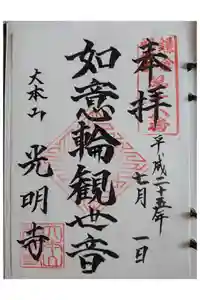 奉拝
平成二十五年
七月 一日
如意輪観世音
大本山
光明寺